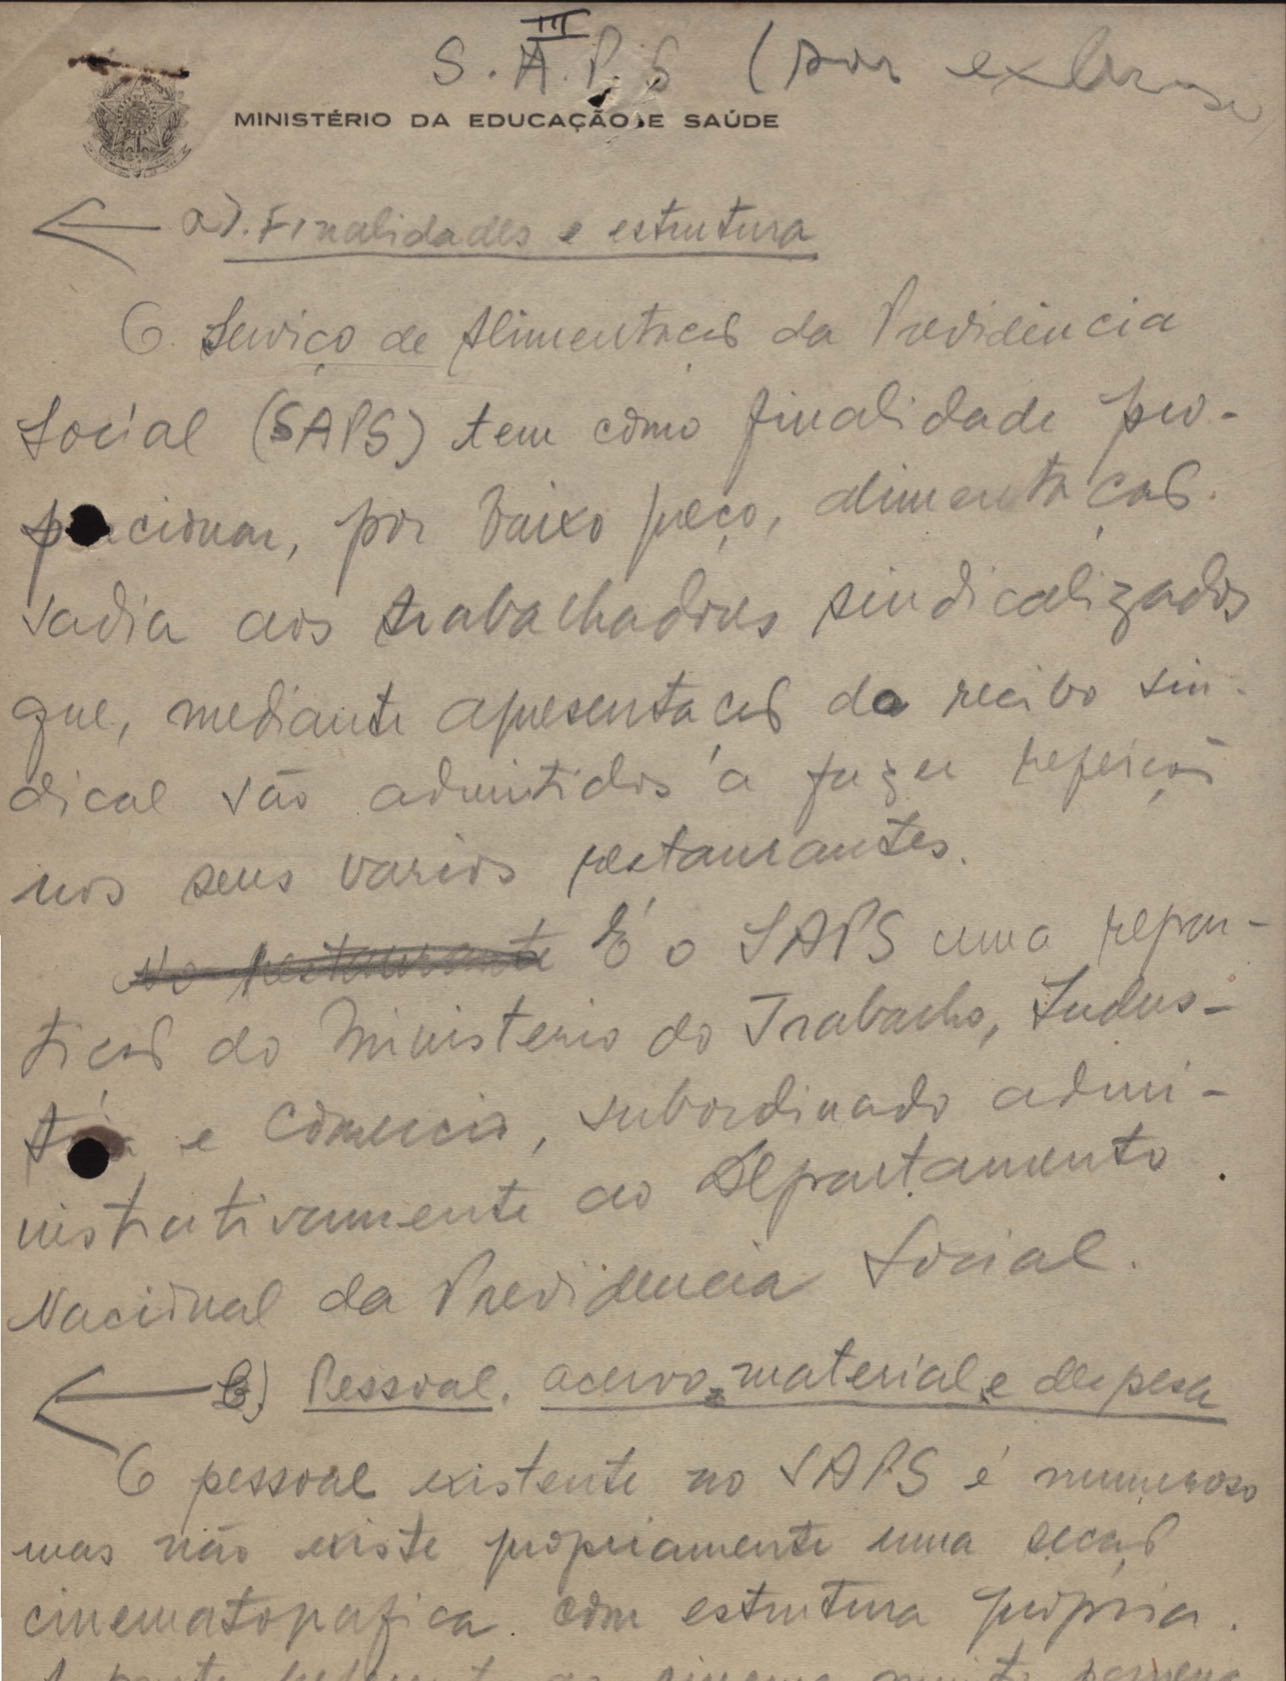 III
S.A.P.S (por extenso)
MINISTÉRIO DA EDUCAÇÃO E SAÚDE
a). Finalidades e estrutura
O Serviço de Alimentação da Previdência
Social (SAPS) tem como finalidade pro-
porcionar, por baixo preço, alimentação
sadia aos trabalhadores sindicalizados
que, mediante apresentação do recibo sin-
dical são admitidos a fazer refeições
nos seus varios restaurantes.
No restaurante É o SAPS uma repar-
tição do Ministerio do Trabalho, Indus-
tria e Comercio, subordinado admi-
nistrativamente ao Departamento
Nacional da Previdencia Social.
b) Pessoal. acervo material e despesa
O pessoal existente no SAPS é numeroso
mas não existe propriamente uma seção
cinematografica com estrutura própria.